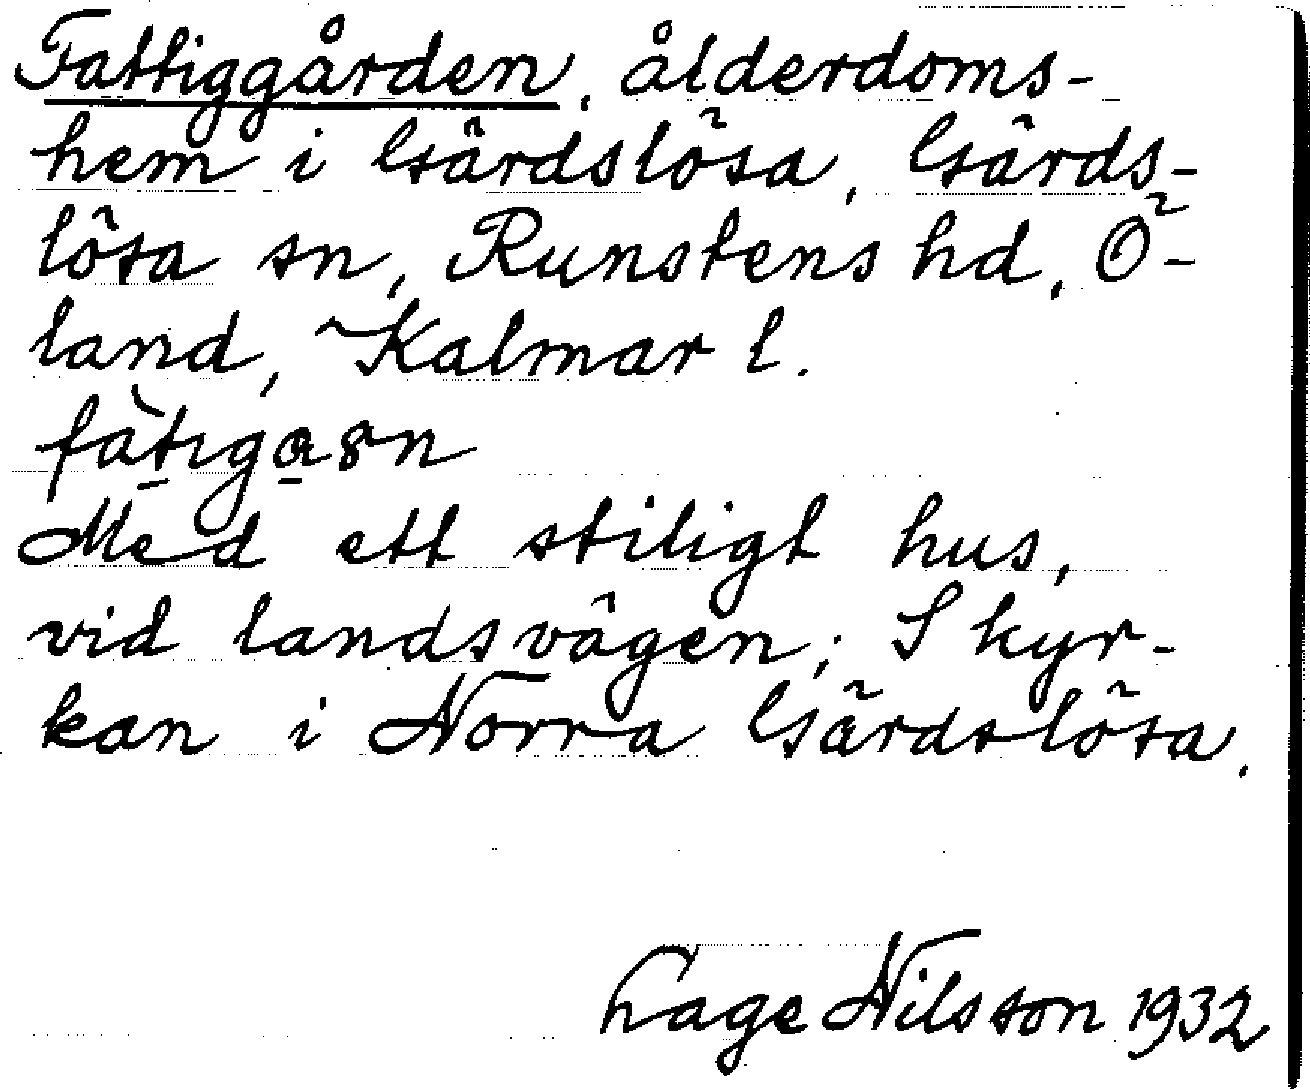 Fattiggården, ålderdoms-
hem i Gärdslösa, Gärds-
lösa sn, Runstens hd, Ö-
land, Kalmar l.
Med ett stiligt hus,
vid landsvägen; S kyr-
kan i Norra Gärdslösa.
Lage Nilsson 1932